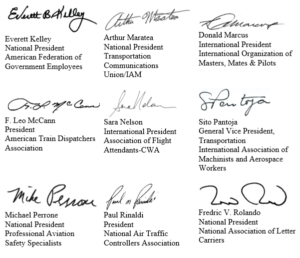 Everett B. Kelley
Everett Kelley
National President
American Federation of
Government Employees
Arthur Maratea
Arthur Maratea
National President
Transportation
Communications
Union/IAM
Donald Marcus
International President
International Organization of
Masters, Mates & Pilots
F. Leo McCann
President
American Train Dispatchers
Association
Sara Nelson
Sara Nelson
International President
Association of Flight
Attendants-CWA
S Pantoja
Sito Pantoja
General Vice President,
Transportation
International Association of
Machinists and Aerospace
Workers
Mike Perrone
Michael Perrone
National President
Professional Aviation
Safety Specialists
Paul Rinaldi
President
National Air Traffic
Controllers Association
Fredric V. Rolando
National President
National Association of Letter
Carriers